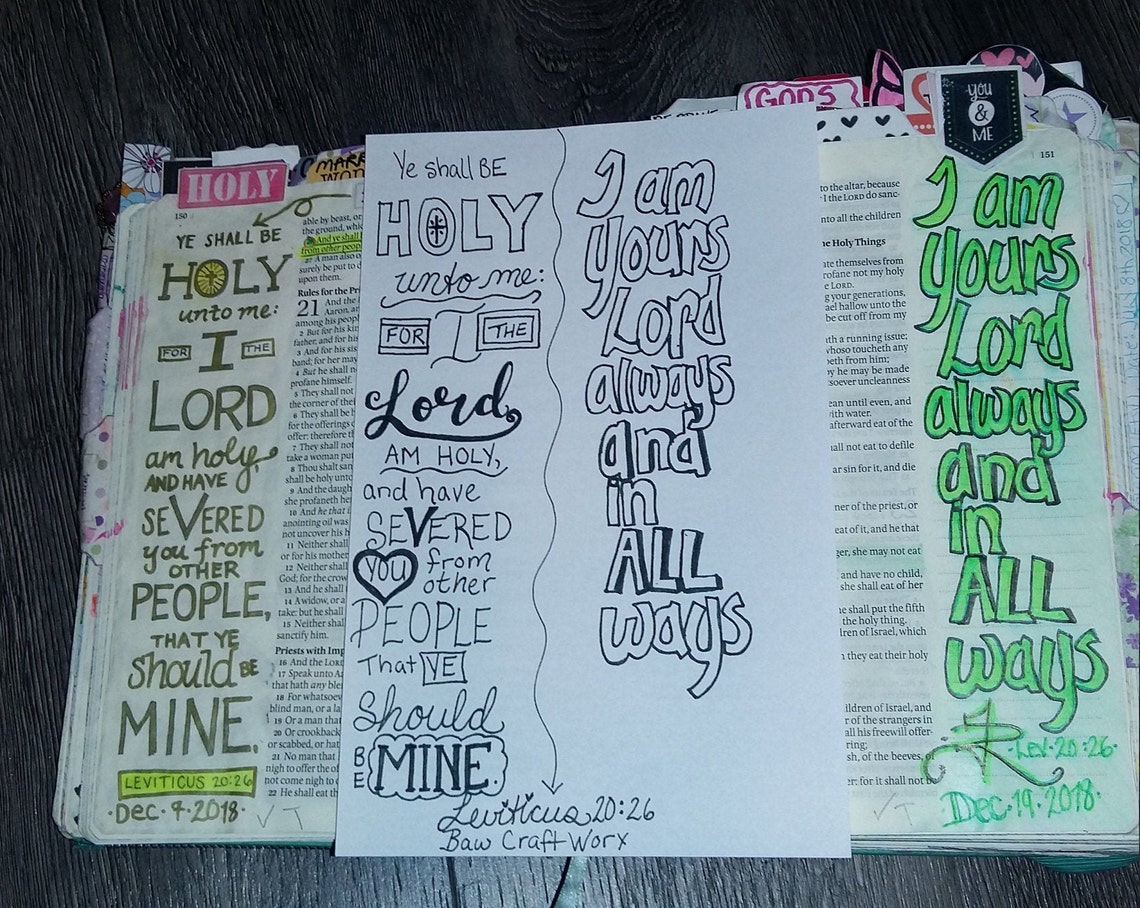 GODS
you
&
ME
HOLY
150
YE SHALL BE
HOLY
unto me:
FOR I THE
LORD
am holy,
AND HAVE
SEVERED
you from
OTHER
PEOPLE,
THAT YE
should BE
MINE.
LEVITICUS 20:26
·Dec·4·2018·
able by beast, or
the ground, whic
And ye shall
from other peop
27 A man also o
surely be put to d
upon them.
Rules for the Pri
21 And the
Aaron, an
among his people
2 But for his kin
father, and for his
3 And for his sis
band; for her may
4 But he shall n
profane himself.
5 They shall not
the corner of thei
6 They shall be h
for the offerings o
offer: therefore th
7 They shall not
take a woman put
8 Thou shalt san
shall be holy unto
9 And the daugh
she profaneth he
10 And he that i
anointing oil was
not uncover his h
11 Neither shall
or for his mother
12 Neither shall
God; for the crow
13 And he shall
14 A widow, or a
take: but he shall
15 Neither shall
sanctify him.
Priests with Imp
16 And the LORD
17 Speak unto Aa
that hath any blem
18 For whatsoev
blind man, or a la
19 Or a man that
20 Or crookback
or scabbed, or hat
21 No man that
nigh to offer the of
not come nigh to o
22 He shall eat th
Ye shall BE
HOLY
unto me:
FOR I THE
Lord,
AM HOLY,
and have
SEVERED
YOU from
other
PEOPLE
That YE
Should
BE MINE.
Leviticus 20:26
Baw Craft Worx
I am
yours
Lord
always
and
in
ALL
ways
151
to the altar, because
I the LORD do sanc-
nto all the children
he Holy Things
ate themselves from
rofane not my holy
e LORD.
g your generations,
ael hallow unto the
be cut off from my
th a running issue;
whoso toucheth any
oeth from him;
by he may be made
soever uncleanness
ean until even, and
with water.
afterward eat of the
all not eat to defile
ar sin for it, and die
ner of the priest, or
eat of it, and he that
ger, she may not eat
and have no child,
she shall eat of her
he shall put the fifth
the holy thing.
dren of Israel, which
n they eat their holy
ildren of Israel, and
r of the strangers in
all his freewill offer-
ring;
sh, of the beeves, or
r: for it shall not be
I am
yours
Lord
always
and
in
ALL
ways
·Lev·20:26·
Dec·19·2018·